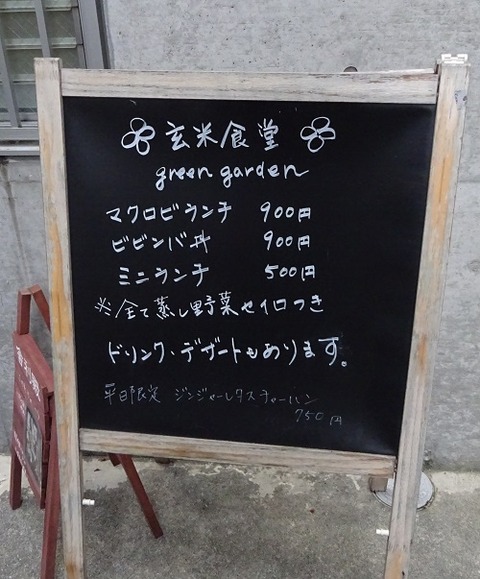 玄米食堂
green garden
マクロビランチ 900円
ビビンバ丼 900円
ミニランチ 500円
※全て蒸し野菜セイロつき
ドリンク・デザートもあります。
平日限定 ジンジャーレタスチャーハン
750円